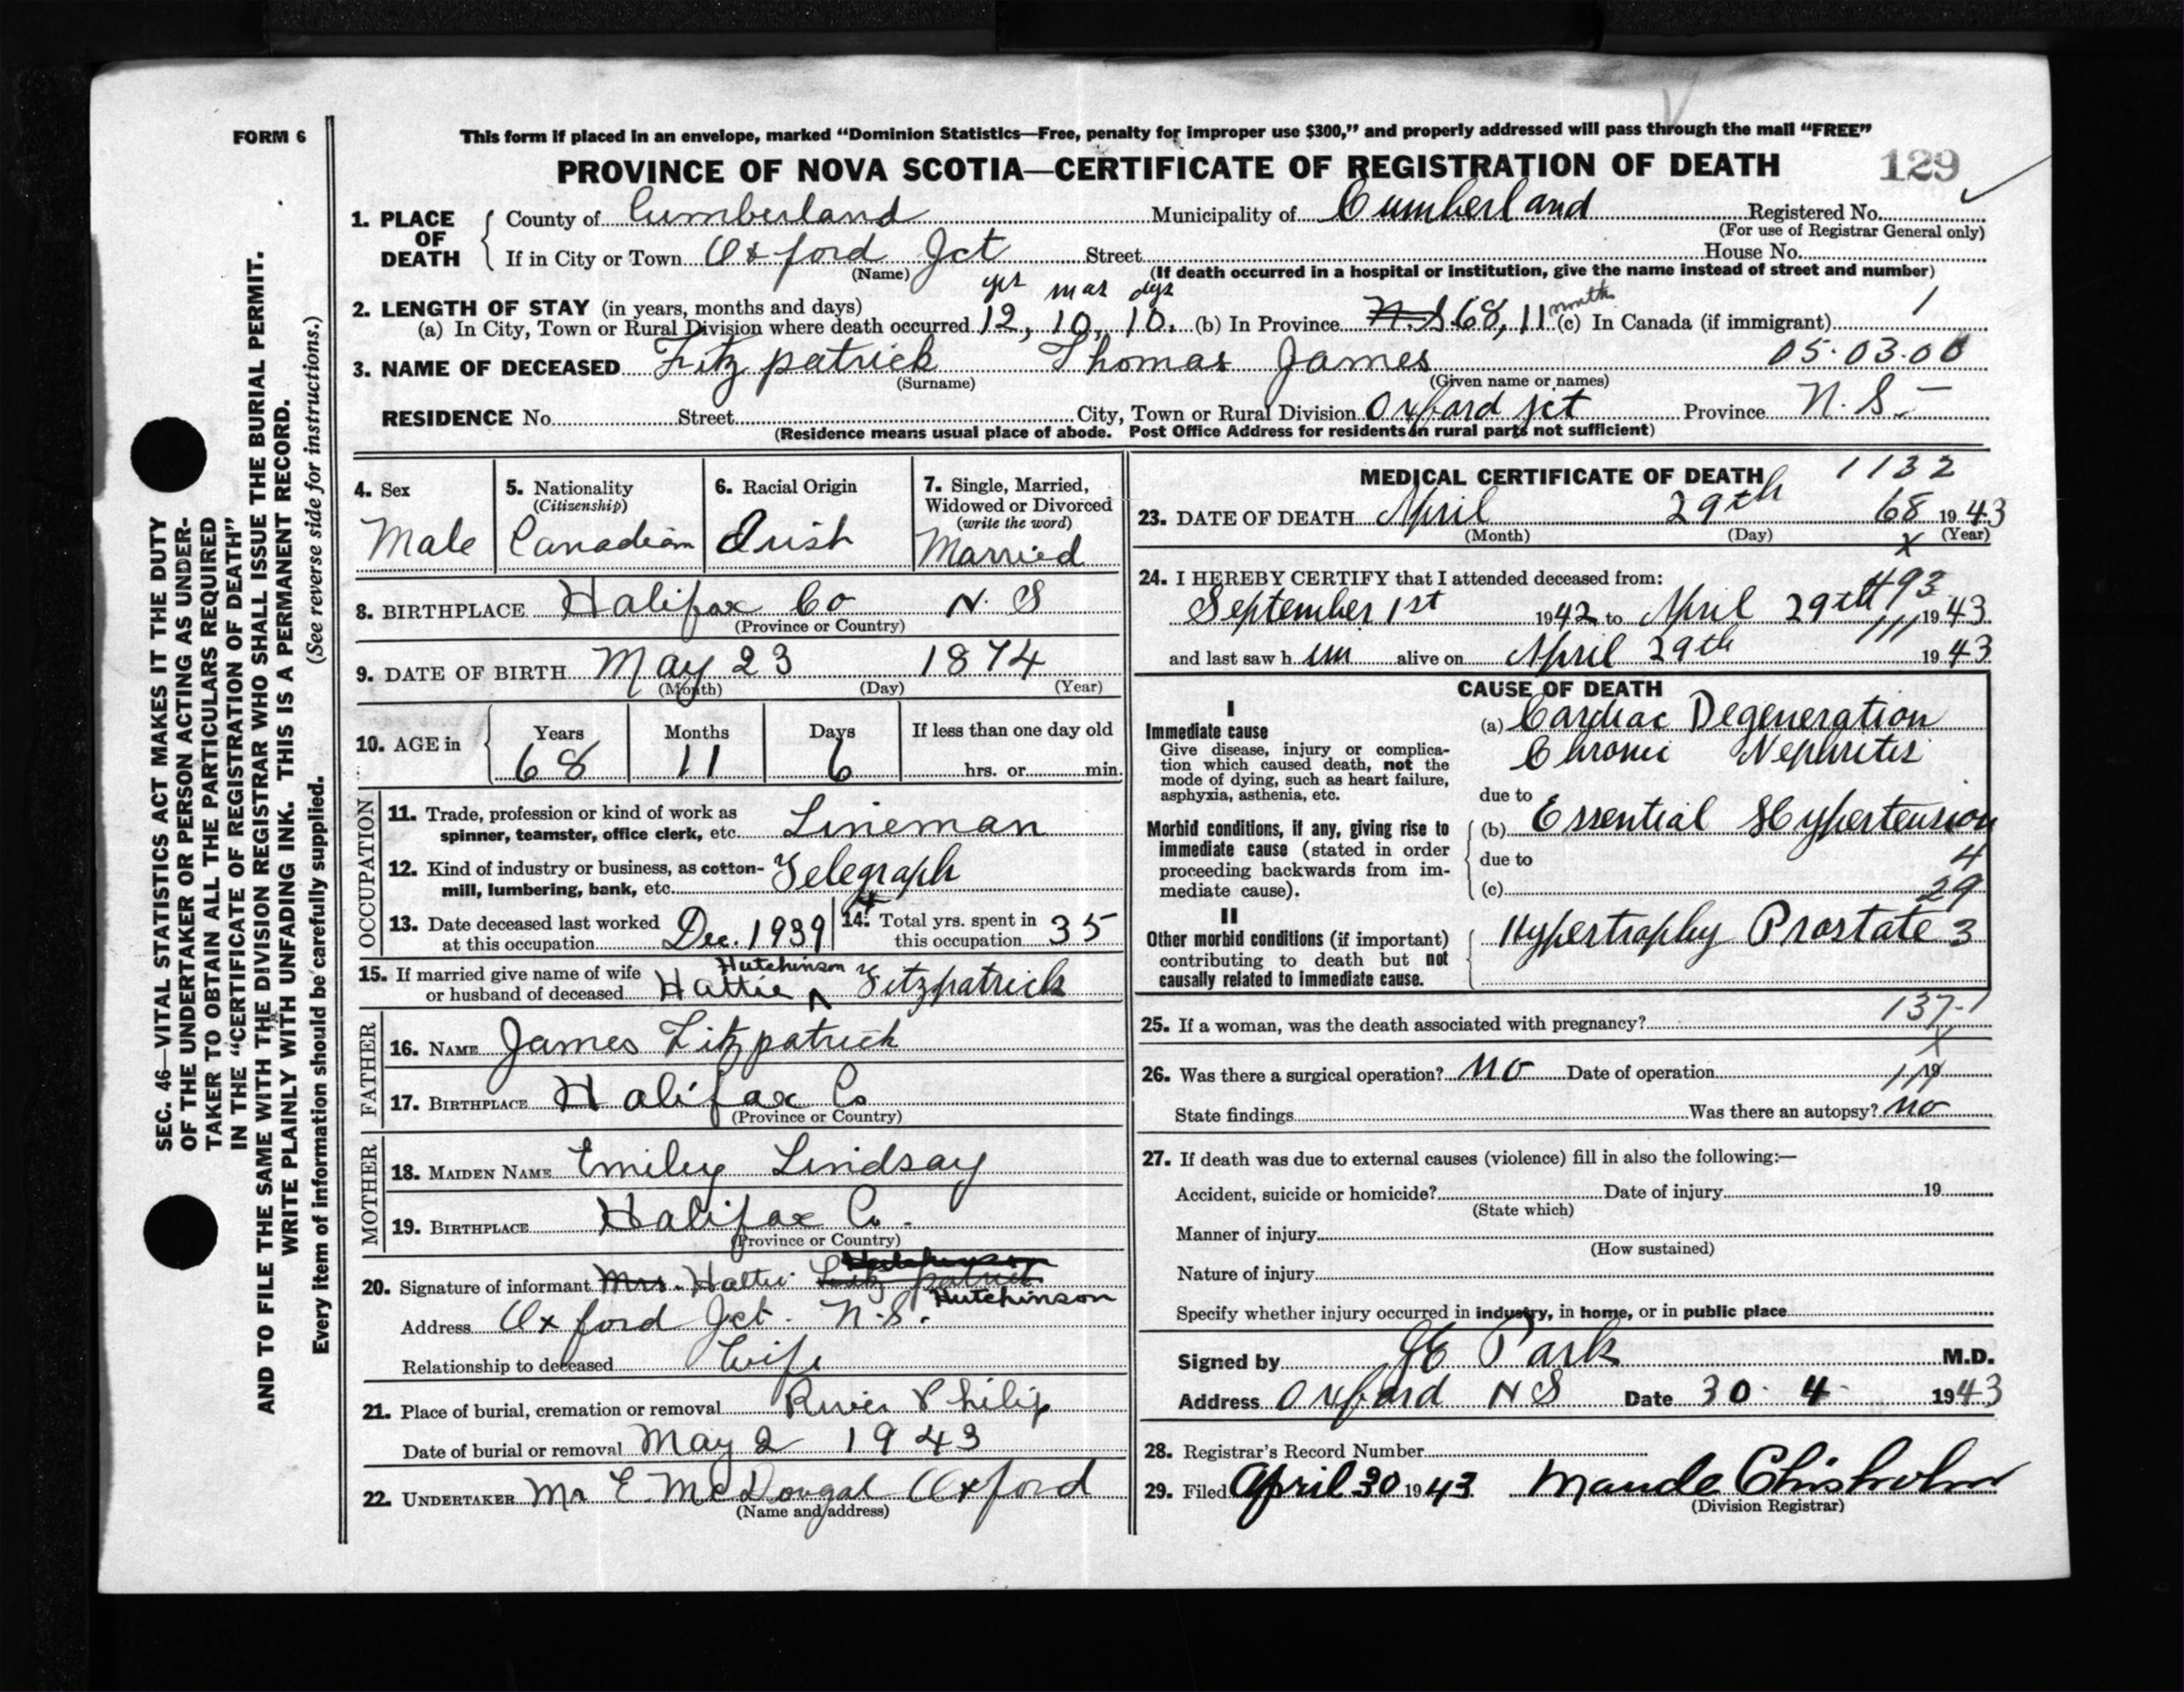 FORM 6
This form if placed in an envelope, marked “Dominion Statistics—Free, penalty for improper use $300,” and properly addressed will pass through the mail “FREE”
PROVINCE OF NOVA SCOTIA—CERTIFICATE OF REGISTRATION OF DEATH 129
1. PLACE OF DEATH County of Cumberland Municipality of Cumberland Registered No.
(For use of Registrar General only)
If in City or Town Oxford Jct Street House No.
(Name) (If death occurred in a hospital or institution, give the name instead of street and number)
yrs mos dys
2. LENGTH OF STAY (in years, months and days)
(a) In City, Town or Rural Division where death occurred 12, 10, 10. (b) In Province N.S. 68, 11 months (c) In Canada (if immigrant) 1
3. NAME OF DECEASED Fitzpatrick Thomas James 05.03.00
(Surname) (Given name or names)
RESIDENCE No. Street City, Town or Rural Division Oxford Jct Province N.S.
(Residence means usual place of abode. Post Office Address for residents in rural parts not sufficient)
4. Sex
Male
5. Nationality
(Citizenship)
Canadian
6. Racial Origin
Irish
7. Single, Married,
Widowed or Divorced
(write the word)
Married
8. BIRTHPLACE Halifax Co N.S
(Province or Country)
9. DATE OF BIRTH May 23 1874
(Month) (Day) (Year)
10. AGE in Years Months Days If less than one day old
68 11 6 hrs. or min.
OCCUPATION
11. Trade, profession or kind of work as
spinner, teamster, office clerk, etc. Lineman
12. Kind of industry or business, as cotton-
mill, lumbering, bank, etc. Telegraph
13. Date deceased last worked
at this occupation Dec. 1939
4
14. Total yrs. spent in
this occupation 35
15. If married give name of wife
or husband of deceased Hattie Hutchinson Fitzpatrick
FATHER
16. NAME James Fitzpatrick
17. BIRTHPLACE Halifax Co
(Province or Country)
MOTHER
18. MAIDEN NAME Emiley Lindsay
19. BIRTHPLACE Halifax Co.
(Province or Country)
20. Signature of informant Mrs. Hattie Fitzpatrick Hutchinson
Address Oxford Jct. N.S.
Relationship to deceased Wife
21. Place of burial, cremation or removal River Philip
Date of burial or removal May 2 1943
22. UNDERTAKER Mr E. McDougal Oxford
(Name and address)
MEDICAL CERTIFICATE OF DEATH 1132
23. DATE OF DEATH April 29th 68 1943
(Month) (Day) (Year)
x
24. I HEREBY CERTIFY that I attended deceased from:
493
September 1st 1942 to April 29th 1943
111
and last saw h im alive on April 29th 1943
CAUSE OF DEATH
I
Immediate cause
Give disease, injury or complica-
tion which caused death, not the
mode of dying, such as heart failure,
asphyxia, asthenia, etc.
(a) Cardiac Degeneration
Chronic Nephritis
due to
Morbid conditions, if any, giving rise to
immediate cause (stated in order
proceeding backwards from im-
mediate cause).
(b) Essential Hypertension
due to 4
(c) 29
II
Other morbid conditions (if important)
contributing to death but not
causally related to immediate cause.
Hypertrophy Prostate 3
137-1
25. If a woman, was the death associated with pregnancy?
x
26. Was there a surgical operation? no Date of operation 19
111
State findings Was there an autopsy? no
27. If death was due to external causes (violence) fill in also the following:—
Accident, suicide or homicide? Date of injury 19
(State which)
Manner of injury
(How sustained)
Nature of injury
Specify whether injury occurred in industry, in home, or in public place
Signed by JE Park M.D.
Address Oxford N S Date 30. 4. 1943
28. Registrar’s Record Number
29. Filed April 30 1943 Maude Chisholm
(Division Registrar)
SEC. 46—VITAL STATISTICS ACT MAKES IT THE DUTY
OF THE UNDERTAKER OR PERSON ACTING AS UNDER-
TAKER TO OBTAIN ALL THE PARTICULARS REQUIRED
IN THE “CERTIFICATE OF REGISTRATION OF DEATH”
AND TO FILE THE SAME WITH THE DIVISION REGISTRAR WHO SHALL ISSUE THE BURIAL PERMIT.
WRITE PLAINLY WITH UNFADING INK. THIS IS A PERMANENT RECORD.
Every item of information should be carefully supplied. (See reverse side for instructions.)